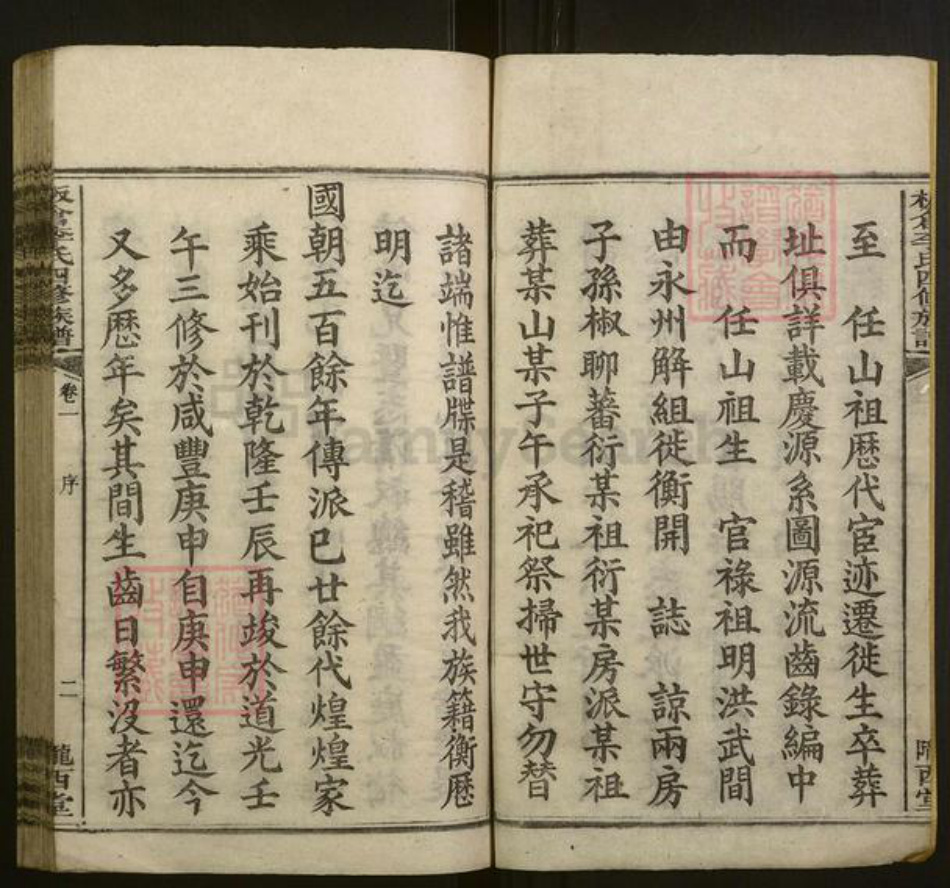 至　任山祖歷代宦迹遷徙生卒葬
址俱詳載慶源系圖源流齒錄編中
而　任山祖生　官祿祖明洪武間
由永州解組徙衡開　誌　諒兩房
子孫椒聊蕃衍某祖衍某房派某祖
葬某山某子午承祀祭掃世守勿替
諸端惟譜牒是稽雖然我族籍衡歷
明迄
國朝五百餘年傳派已廿餘代煌煌家
乘始刊於乾隆壬辰再竣於道光壬
午三修於咸豐庚申自庚申還迄今
又多歷年矣其間生齒日繁沒者亦
李氏四修族譜
卷一
序
二
隴西堂
FamilySearch